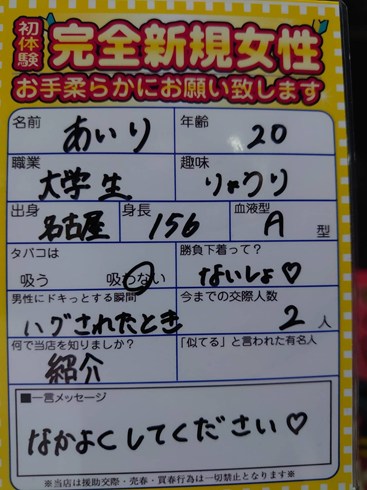 初体験
完全新規女性
お手柔らかにお願い致します
名前 あいり 年齢 20
職業 大学生 趣味 りょうり
出身 名古屋 身長 156 血液型 A 型
タバコは 吸う 吸わない 勝負下着って? ないしょ♡
男性にドキっとする瞬間 ハグされたとき 今までの交際人数 2 人
何で当店を知りましたか? 紹介 「似てる」と言われた有名人
■一言メッセージ
なかよくしてください♡
※当店は援助交際・売春・買春行為は一切禁止となります※